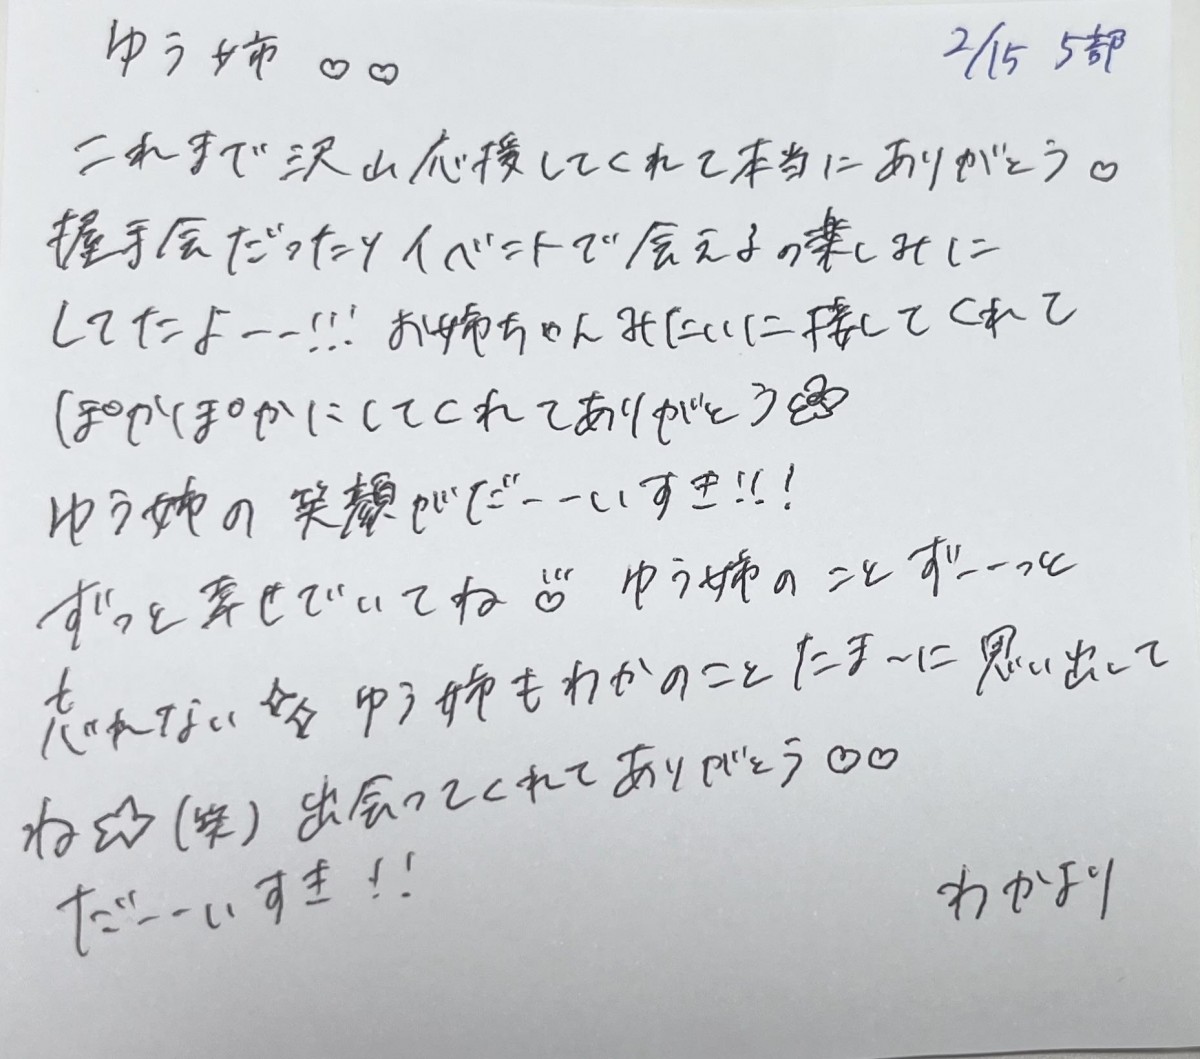 ゆう姉♡♡
2/15 5部
これまで沢山応援してくれて本当にありがとう♡
握手会だったりイベントで会えるの楽しみに
してたよーー!!! お姉ちゃんみたいに接してくれて
ぽかぽかにしてくれてありがとう
ゆう姉の笑顔がだーーいすき!!!
ずっと幸せでいてね ゆう姉のことずーーっと
忘れない☆☆ ゆう姉もわかのことたま〜に思い出して
ね☆(笑) 出会ってくれてありがとう♡♡
だーーいすき!!
わかより